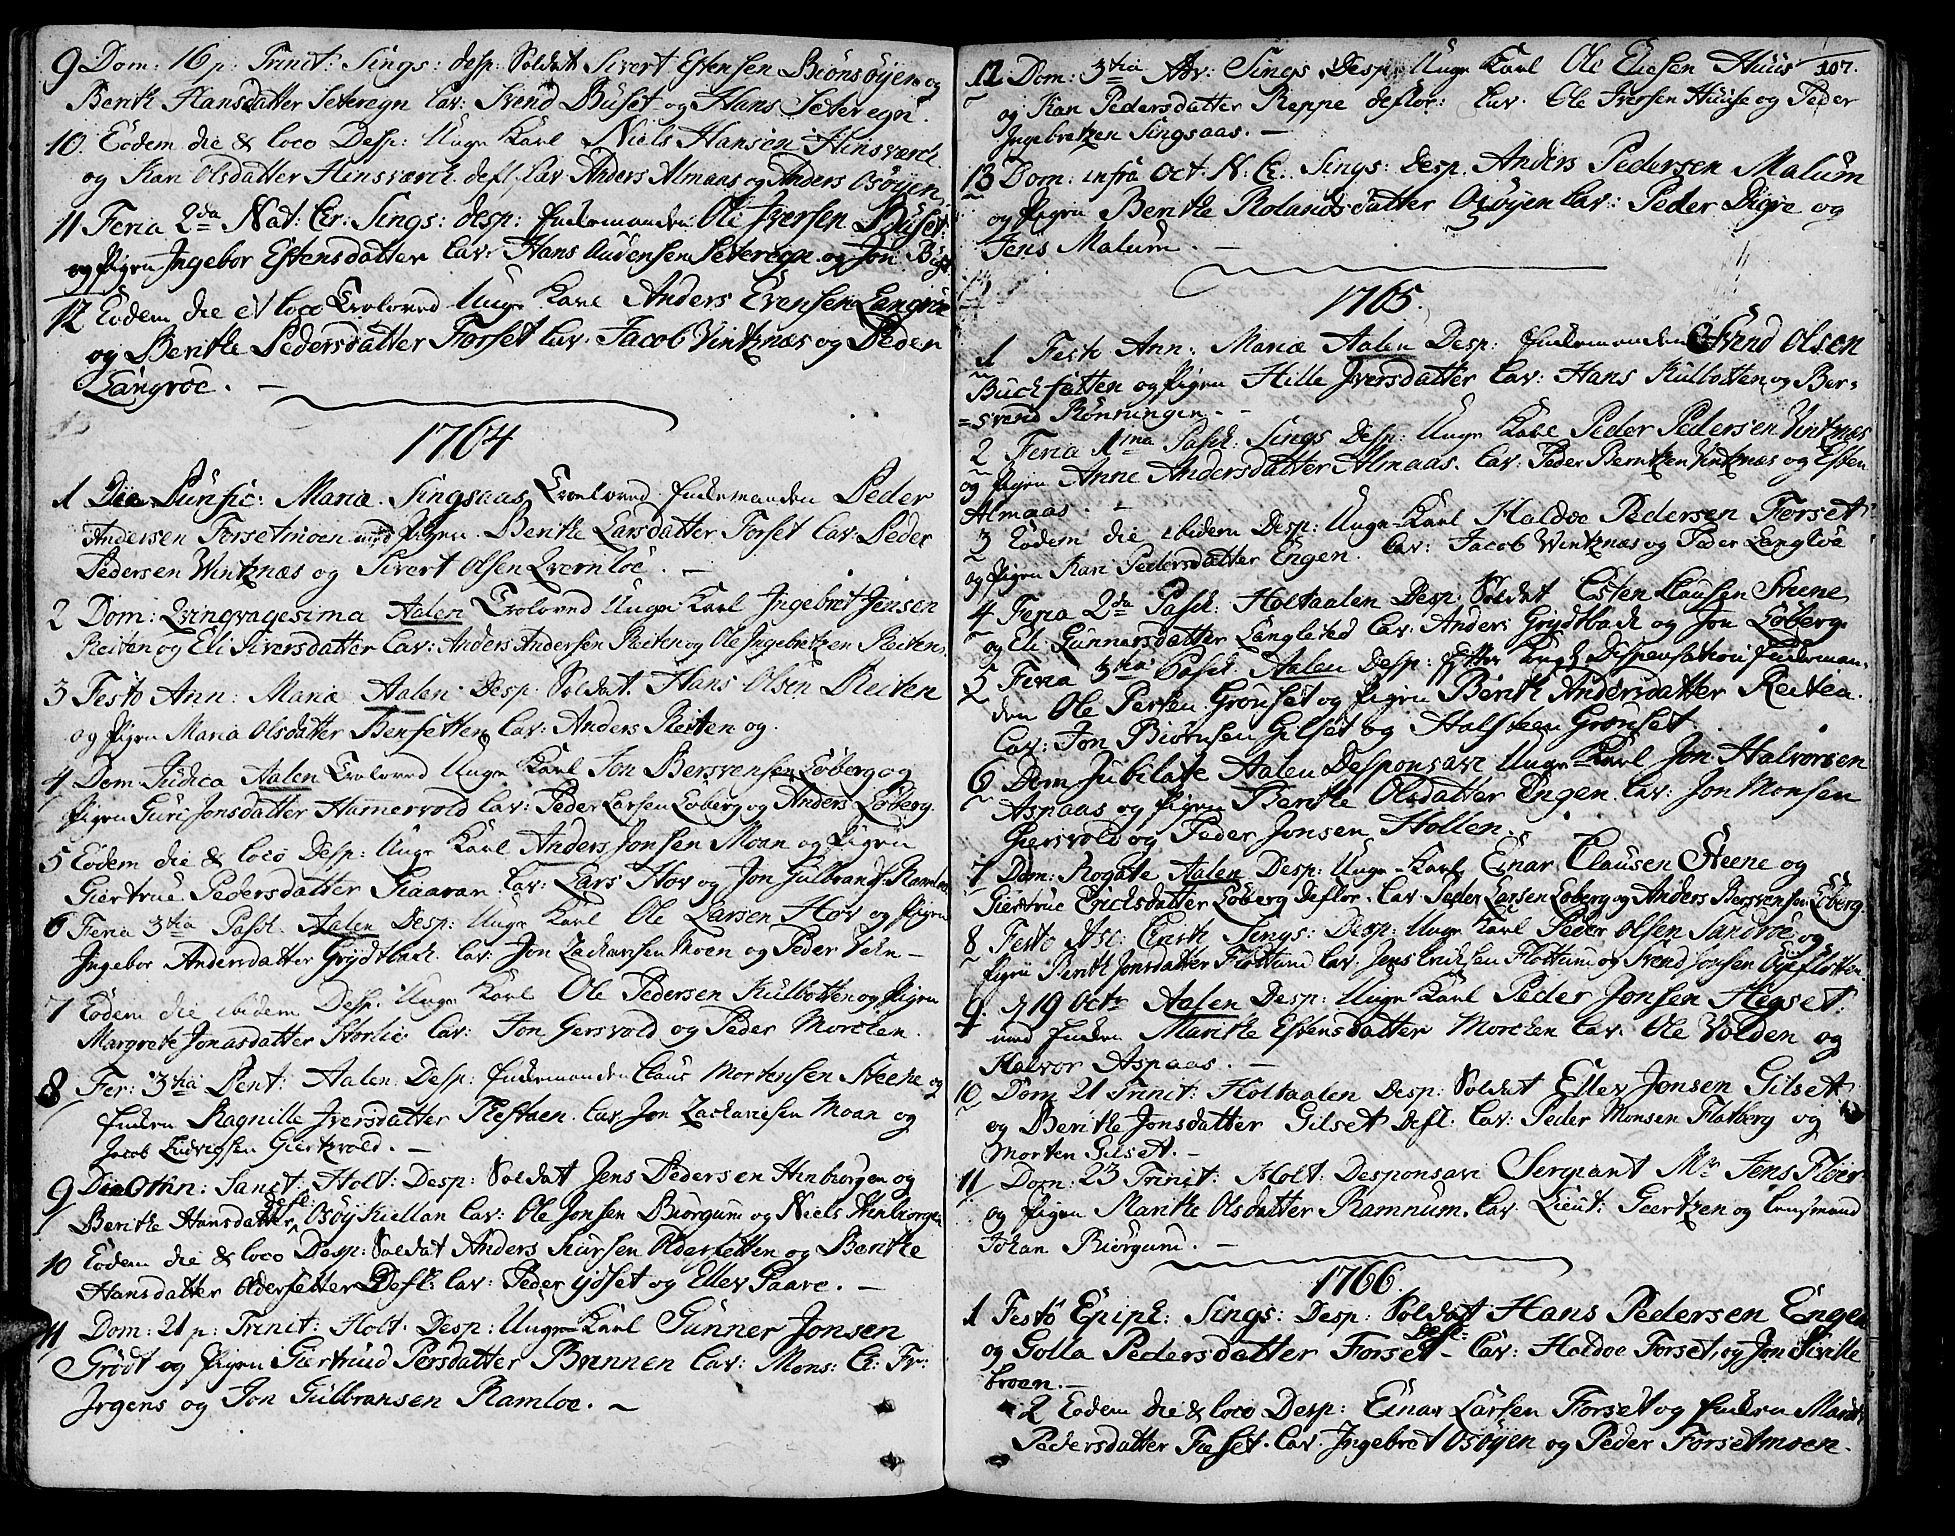 9 Dom: 16 p: Trinit: Sings: desp: Soldat Sivert Estensen Biönsöyen og
Berith Hansdatter Seteregn Cav: Svend Buset og Hans Seteregn.
10. Eodem die & loco Desp: Unge Karl Niels Hansen Hinsværck
og Kari Olsdatter Hinsværck defl. Cav: Anders Almaas og Anders Osöyen
11 Feria 2da Nat: Chr: Sings: desp: Enkemanden Ole Iversen Buset
og Pigen Ingebor Estensdatter Cav: Hans Audensen Seteregn og Jon Buset
12 Eodem die et loco Troloved Unge Karl Anders Evensen Langröe
og Berithe Pedersdatter Forset Cav. Jacob Vintznæs og Peder
Langroe. —
1764
1 Die Purific: Mariæ. Singsaas Trolowed Enkemanden Peder
Andersen Forsetmoen med Pigen Berithe Larsdatter Forset Cav: Peder
Pedersen Wintznæs og Sivert Olsen Qvernloe. —
2 Dom: Qvinqvagesima Aalen Trolowed Unge Karl Ingebret Jensen
Reiten og Eli Siversdatter Cav: Anders Andersen Reiten og Ole Ingebretzen Reiten.
3 Festo Ann: Mariæ Aalen Desp: Soldat. Hans Olsen Reiten
og Pigen Maria Olsdatter Bensetten Cav: Anders Reiten og
4 Dom Judica Aalen Trolowed Unge Karl Jon Bersvensen Löberg og
Pigen Guri Jonsdatter Hamervold Cav: Peder Larsen Löberg og Anders Löberg.
5 Eodem die & loco Desp: Unge Karl Anders Jonsen Moan og Pigen
Giertrue Pedersdatter Gaaran Cav: Lars Hov og Jon Gulbrands. Ramloe
6 Feria 3tia Pasch. Aalen Desp: Unge Karl Ole Larsen Hov og Pigen
Ingebor Andersdatter Grydtbach. Cav. Jon Zachariesen Moen og Peder
7 Eodem die ibidem Desp: Unge Karl Ole Pedersen Kulbotten og Pigen
Margrete Jonasdatter Storlie Cav: Jon Gersvold og Peder Morchen.
8 Fer: 3tia Pent: Aalen Desp: Enkemanden Claus Mortensen Steene og
Enken Ragnille Iversdatter Reftaen. Cav: Jon Zachariesen Moan og
Jacob Ludvigsen Giertzvold. —
9 Die Omn: Sanct: Holt: Desp: Soldat Jens Pedersen Hinborgen og
Berithe Hansdatter Defl: Osöy Kiellan Cav: Ole Jonsen Biörgum og Niels Hinborgen
10 Eodem die & loco Desp: Soldat Anders Siursen Oldersetten og Berithe
Hansdatter Oldersetter Defl: Cav: Peder ydset og Ellev Gaare. —
11 Dom: 21 p: Trinit: Holt. Desp: Unge Karl Gunner Jonsen
Grödt og Pigen Giertrud Persdatter Brennen Cav: Mons: C: Fr:
Irgens og Jon Gulbransen Ramloe. —
107.
12 Dom: 3tia Adv: Sings Desp: Unge Karl Ole Eliesen Huus
og Kari Pedersdatter Reppe deflor: Cav. Ole Iversen Huuse og Peder
Ingebretzen Singsaas. —
13 Dom: infra Oct. N. Ch. Sings: desp. Anders Pedersen Malum
og Pigen Berithe Rolandsdatter Osöyen Cav: Peder Digre og
Jens Malum. —
1765.
1 Festo Ann: Mariæ Aalen Desp: Enkemanden Svend Olsen
Buchfatten og Pigen Hille Iversdatter Cav: Hans Kulbotten og Ber=
=svend Rönningen. —
2 Feria 1ma Pasch: Sings Desp: Unge Karl Peder Pedersen Vintznæs
og Pigen Anne Andersdatter Almaas. Cav: Peder Berntzen Vintznæs og Esten
Almaas. —
3 Eodem die ibidem Desp: Unge Karl Haldoe Pedersen Forset
og Pigen Kari Pedersdatter Engen. Cav: Jacob Wintznæs og Peder Langloe
4 Feria 2da Pasch: Holtaalen Desp: Soldat Esten Clausen Steene
og Eli Gunnersdatter Langleted Cav: Anders Grydtbach og Jon Löberg.
5 Feria 3tia Pasch Aalen Desp: efter Kongl Dispensation Enkeman=
den Ole Persen Grönset og Pigen Berith Andersdatter Reiten.
Cav: Jon Biörnsen Gilset og Halsteen Grönset.
6 Dom Jubilate Aalen Desponsavi Unge Karl Jon Halvorsen
Aspaas og Pigen Berithe Olsdatter Engen. Cav: Jon Monsen
Giersvold og Peder Jonsen Hollen.
7 Dom: Rogate Aalen Desp: Unge Karl Einar Clausen Steene og
Giertrue Erichsdatter Löberg Deflor. Cav. Peder Larsen Löberg og Anders Bersvensen Löberg.
8 Festo Asc: Christi Sings: Desp: Unge Karl Peder Olsen Sandroe og
Pigen Berith Jonsdatter Flottum Cav. Jens Erichsen Flottum og Svend Jonsen
9. d 19 Octr Aalen Desp: Unge Karl Peder Jonsen Hegset.
med Enken Marithe Estensdatter Morchen Cav. Ole Volden og
Halvor Aspaas. —
10 Dom 21 Trinit: Holtaalen Desp: Soldat Ellev Jonsen Gilset
og Berithe Jonsdatter Gilset Defl: Cav: Peder Monsen Flatberg og
Morten Gilset. —
11 Dom: 23 Trinit: Holt: Desponsavi Sergeant Mr Jens Floer
og Pigen Marithe Olsdatter Ramnum. Cav. Lieut: Giertzen og Lensmand
Johan Biörgum. —
1766
1 Festo Epiph: Sings: Desp: Soldat Hans Pedersen Engen
og Golla Pedersdatter Forset Defl: Cav: Haldoe Forset, og Jon Siville
broen. —
2 Eodem die & loco Desp: Einar Larsen Forset og Enken Marit
Pedersdatter Forset. Cav. Ingebret Osöyen og Peder Forsetmoen.